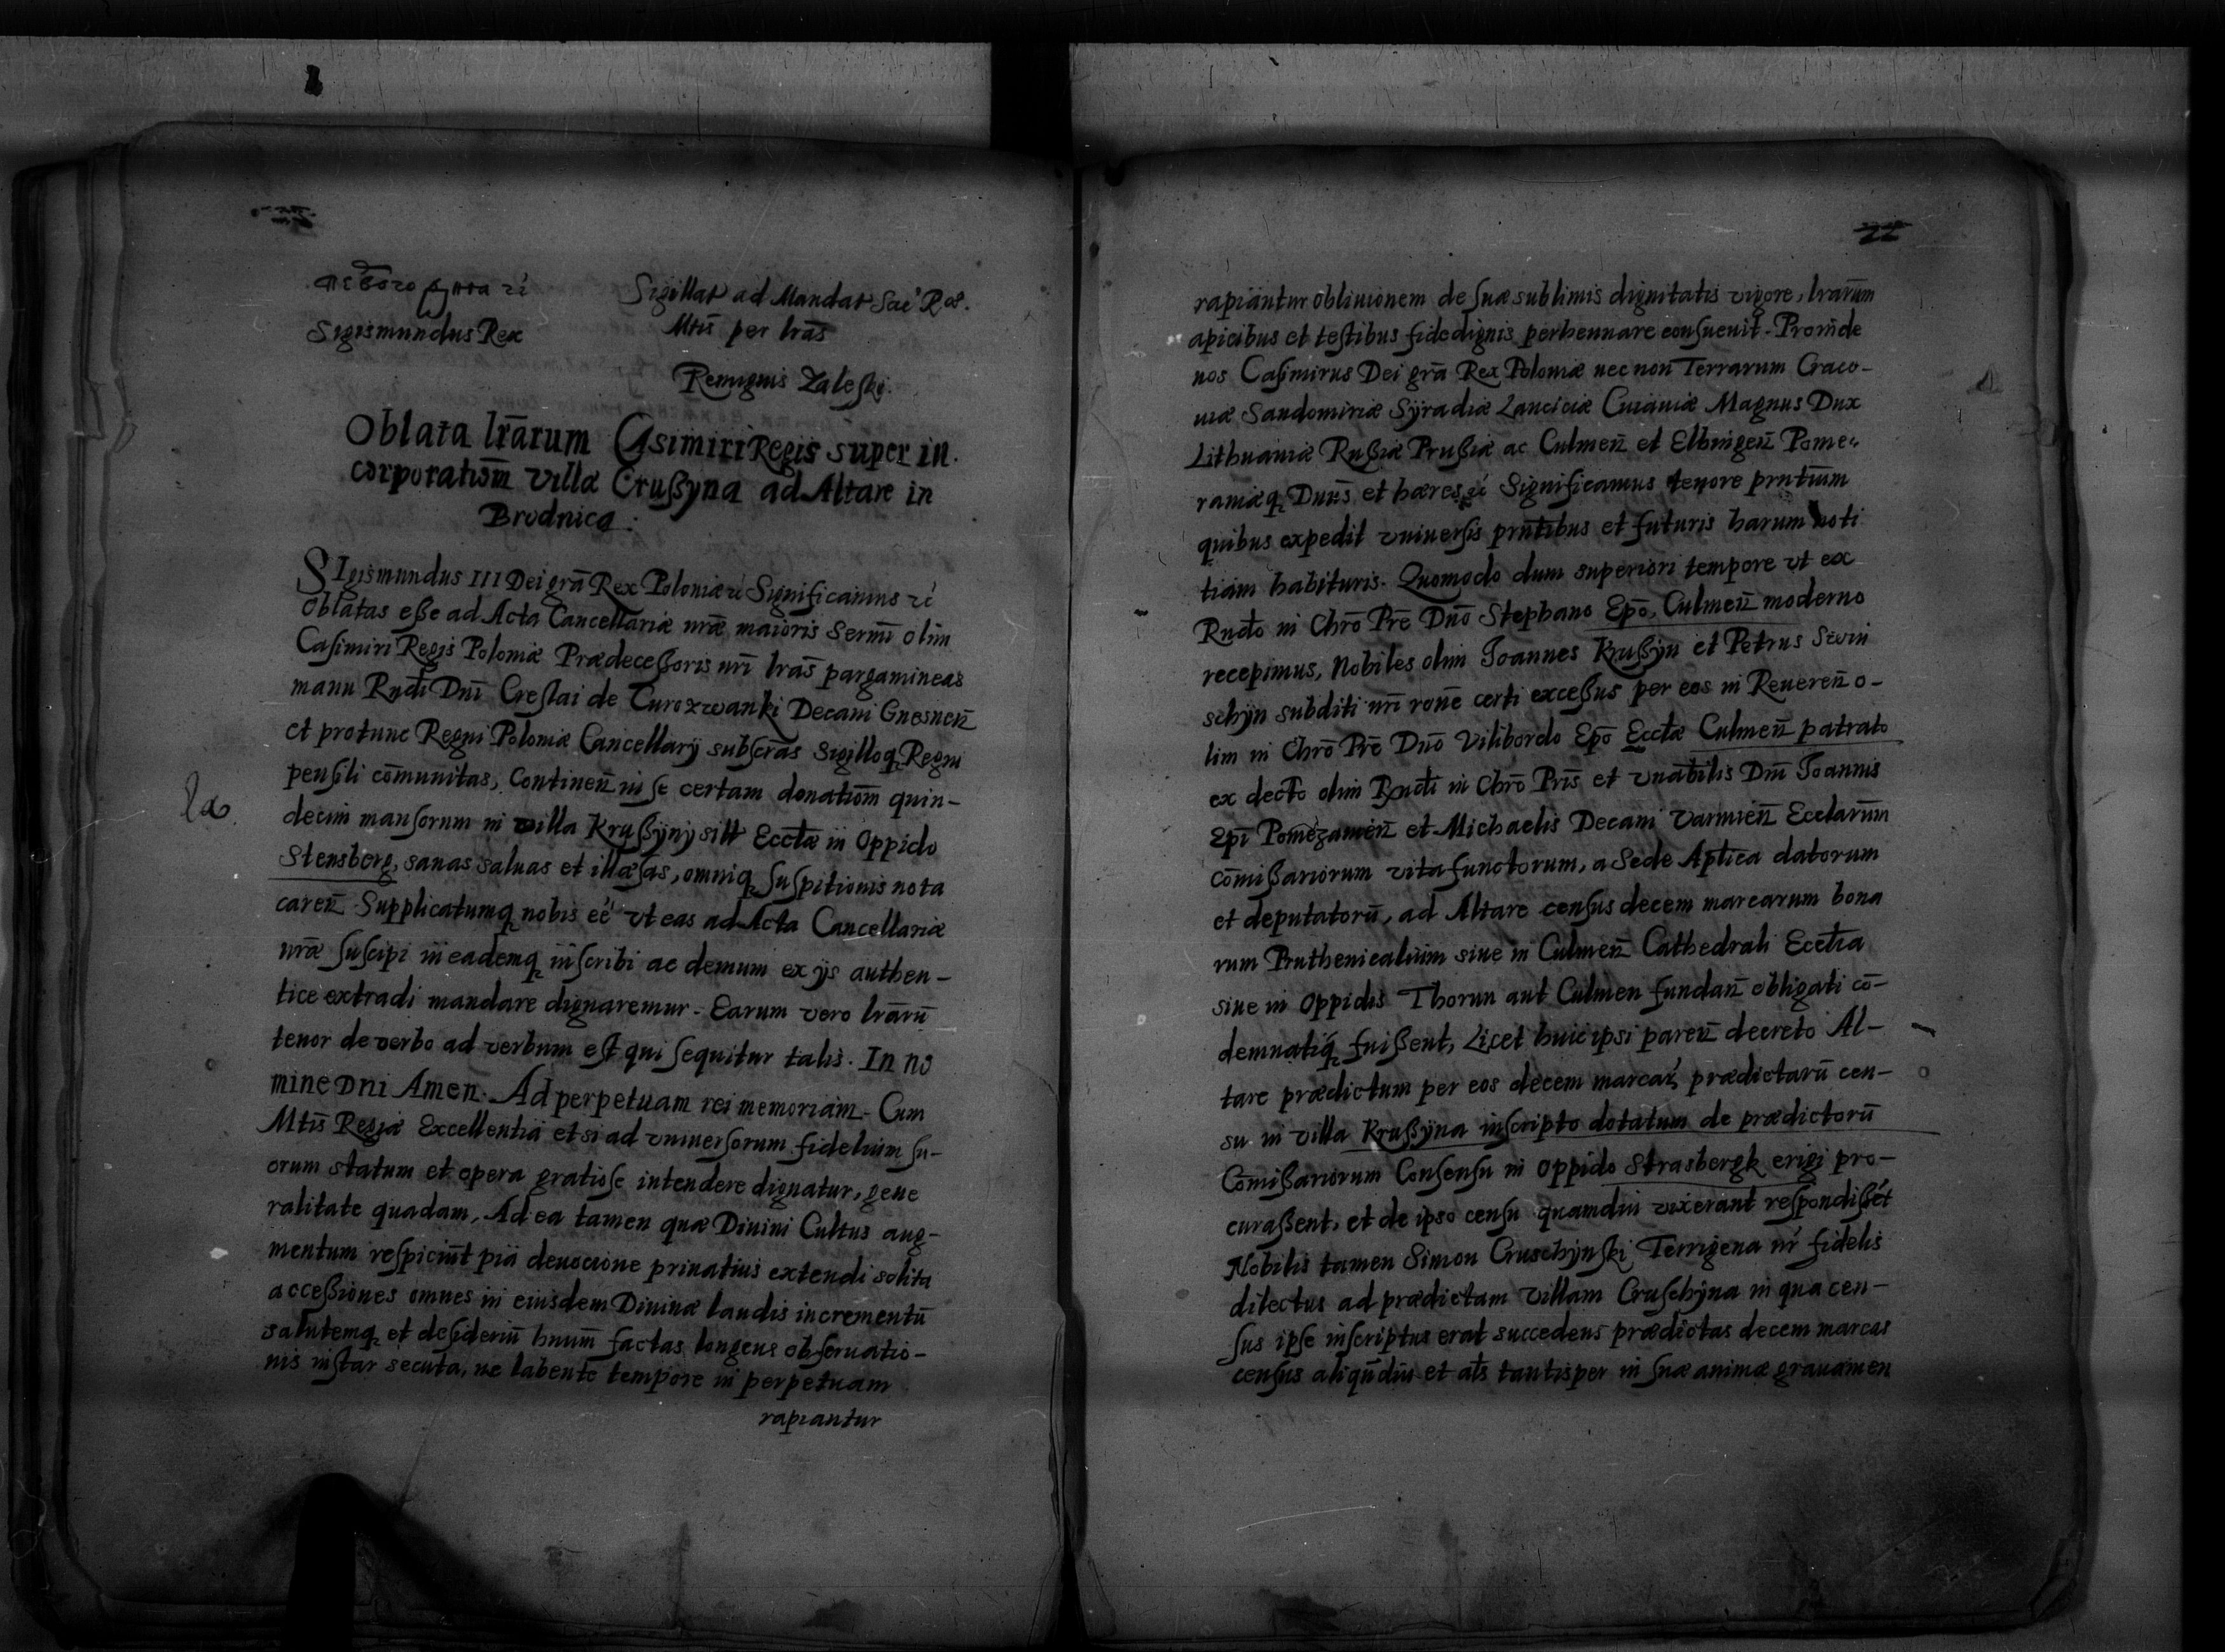 Sigismundus Rex
Sigillat ad Mandat Sac Rae.
Mtis per lras
Remigius Zaleski.
Oblata lrarum Casimiri Regis super in.
corporatiom villæ Crußyna ad Altare in
Brodnica.
SIgismundus III Dei gra Rex Poloniæ rc Significamus rc
Oblatas eße ad Acta Cancellariæ nræ maioris Sermi olim
Casimiri Regis Poloniæ Prædeceßoris nri lras pargamineas
manu Rndi Dni Creslai de Curozwanki Decani Gnesnen
et protunc Regni Poloniæ Cancellarij subscras Sigilloq Regni
pensili communitas, Continen in se certam donatiom quin-
decim mansorum in villa Krußyny sitt Ecctæ in Oppido
Stensberg, sanas saluas et illæsas, omniq suspitionis nota
caren Supplicatumq nobis eē vt eas ad Acta Cancellariæ
nræ suscipi in eademq inscribi ac demum ex ijs authen-
tice extradi mandare dignaremur. Earum vero lraru
tenor de verbo ad verbum est qui sequitur talis. In no
mine Dni Amen. Ad perpetuam rei memoriam. Cum
Mtis Regiæ Excellentia etsi ad vniuersorum fidelium su-
orum statum et opera gratiose intendere dignatur, gene
ralitate quadam, Ad ea tamen quæ Diuini Cultus aug-
mentum respiciūt pia deuocione priuatius extendi solita
acceßiones omnes in eiusdem Diuinæ laudis incrementū
salutemq et desideriū hnum factas longeus obseruatio-
nis instar secuta, ne labente tempore in perpetuam
rapiantur
22
rapiantur obliuionem de suæ sublimis dignitatis vigore, lrarum
apicibus et testibus fidedignis perhennare consueuit. Proinde
nos Casimirus Dei gra Rex Poloniæ nec non Terrarum Craco-
uiæ Sandomiriæ Syradiæ Lanciciæ Cuiauiæ Magnus Dux
Lithuaniæ Rußiæ Prußiæ ac Culmen et Elbingen Pome-
raniæq Dnus et hæres rc Significamus tenore prntium
quibus expedit vniuersis prntibus et futuris harum noti
tiam habituris. Quomodo dum superiori tempore vt ex
Rndo in Chro Pre Dno Stephano Epo, Culmen moderno
recepimus, Nobiles olim Joannes Krußyn et Petrus Swin
schyn subditi nri rone certi exceßus per eos in Reueren o-
lim in Chro Pre Dno Vilibordo Epo Ecctæ Culmen patrato
ex decto olim Rndi in Chro Pris et vnabilis Dni Joannis
Epi Pomezanien et Michaelis Decani Varmien Ecclarum
comißariorum vita functorum, a Sede Aptica datorum
et deputatorū, ad Altare census decem marcarum bona
rum Pruthenicalium siue in Culmen Cathedrali Ecctia
siue in Oppidis Thorun aut Culmen fundan obligati cō-
demnatiq fuißent, Licet huic ipsi paren decreto Al-
tare prædictum per eos decem marcar, prædictarū cen-
su in villa Krußyna inscripto dotatum de prædictorū
Comißariorum Consensu in Oppido Strasbergk erigi pro-
curaßent, et de ipso censu quamdiu vixerant respondißet
Nobilis tamen Simon Cruschynski Terrigena nr fidelis
dilectus ad prædictam villam Cruschyna in qua cen-
sus ipse inscriptus erat succedens prædictas decem marcas
census aliqūdiu et als tantisper in suæ animæ grauamen